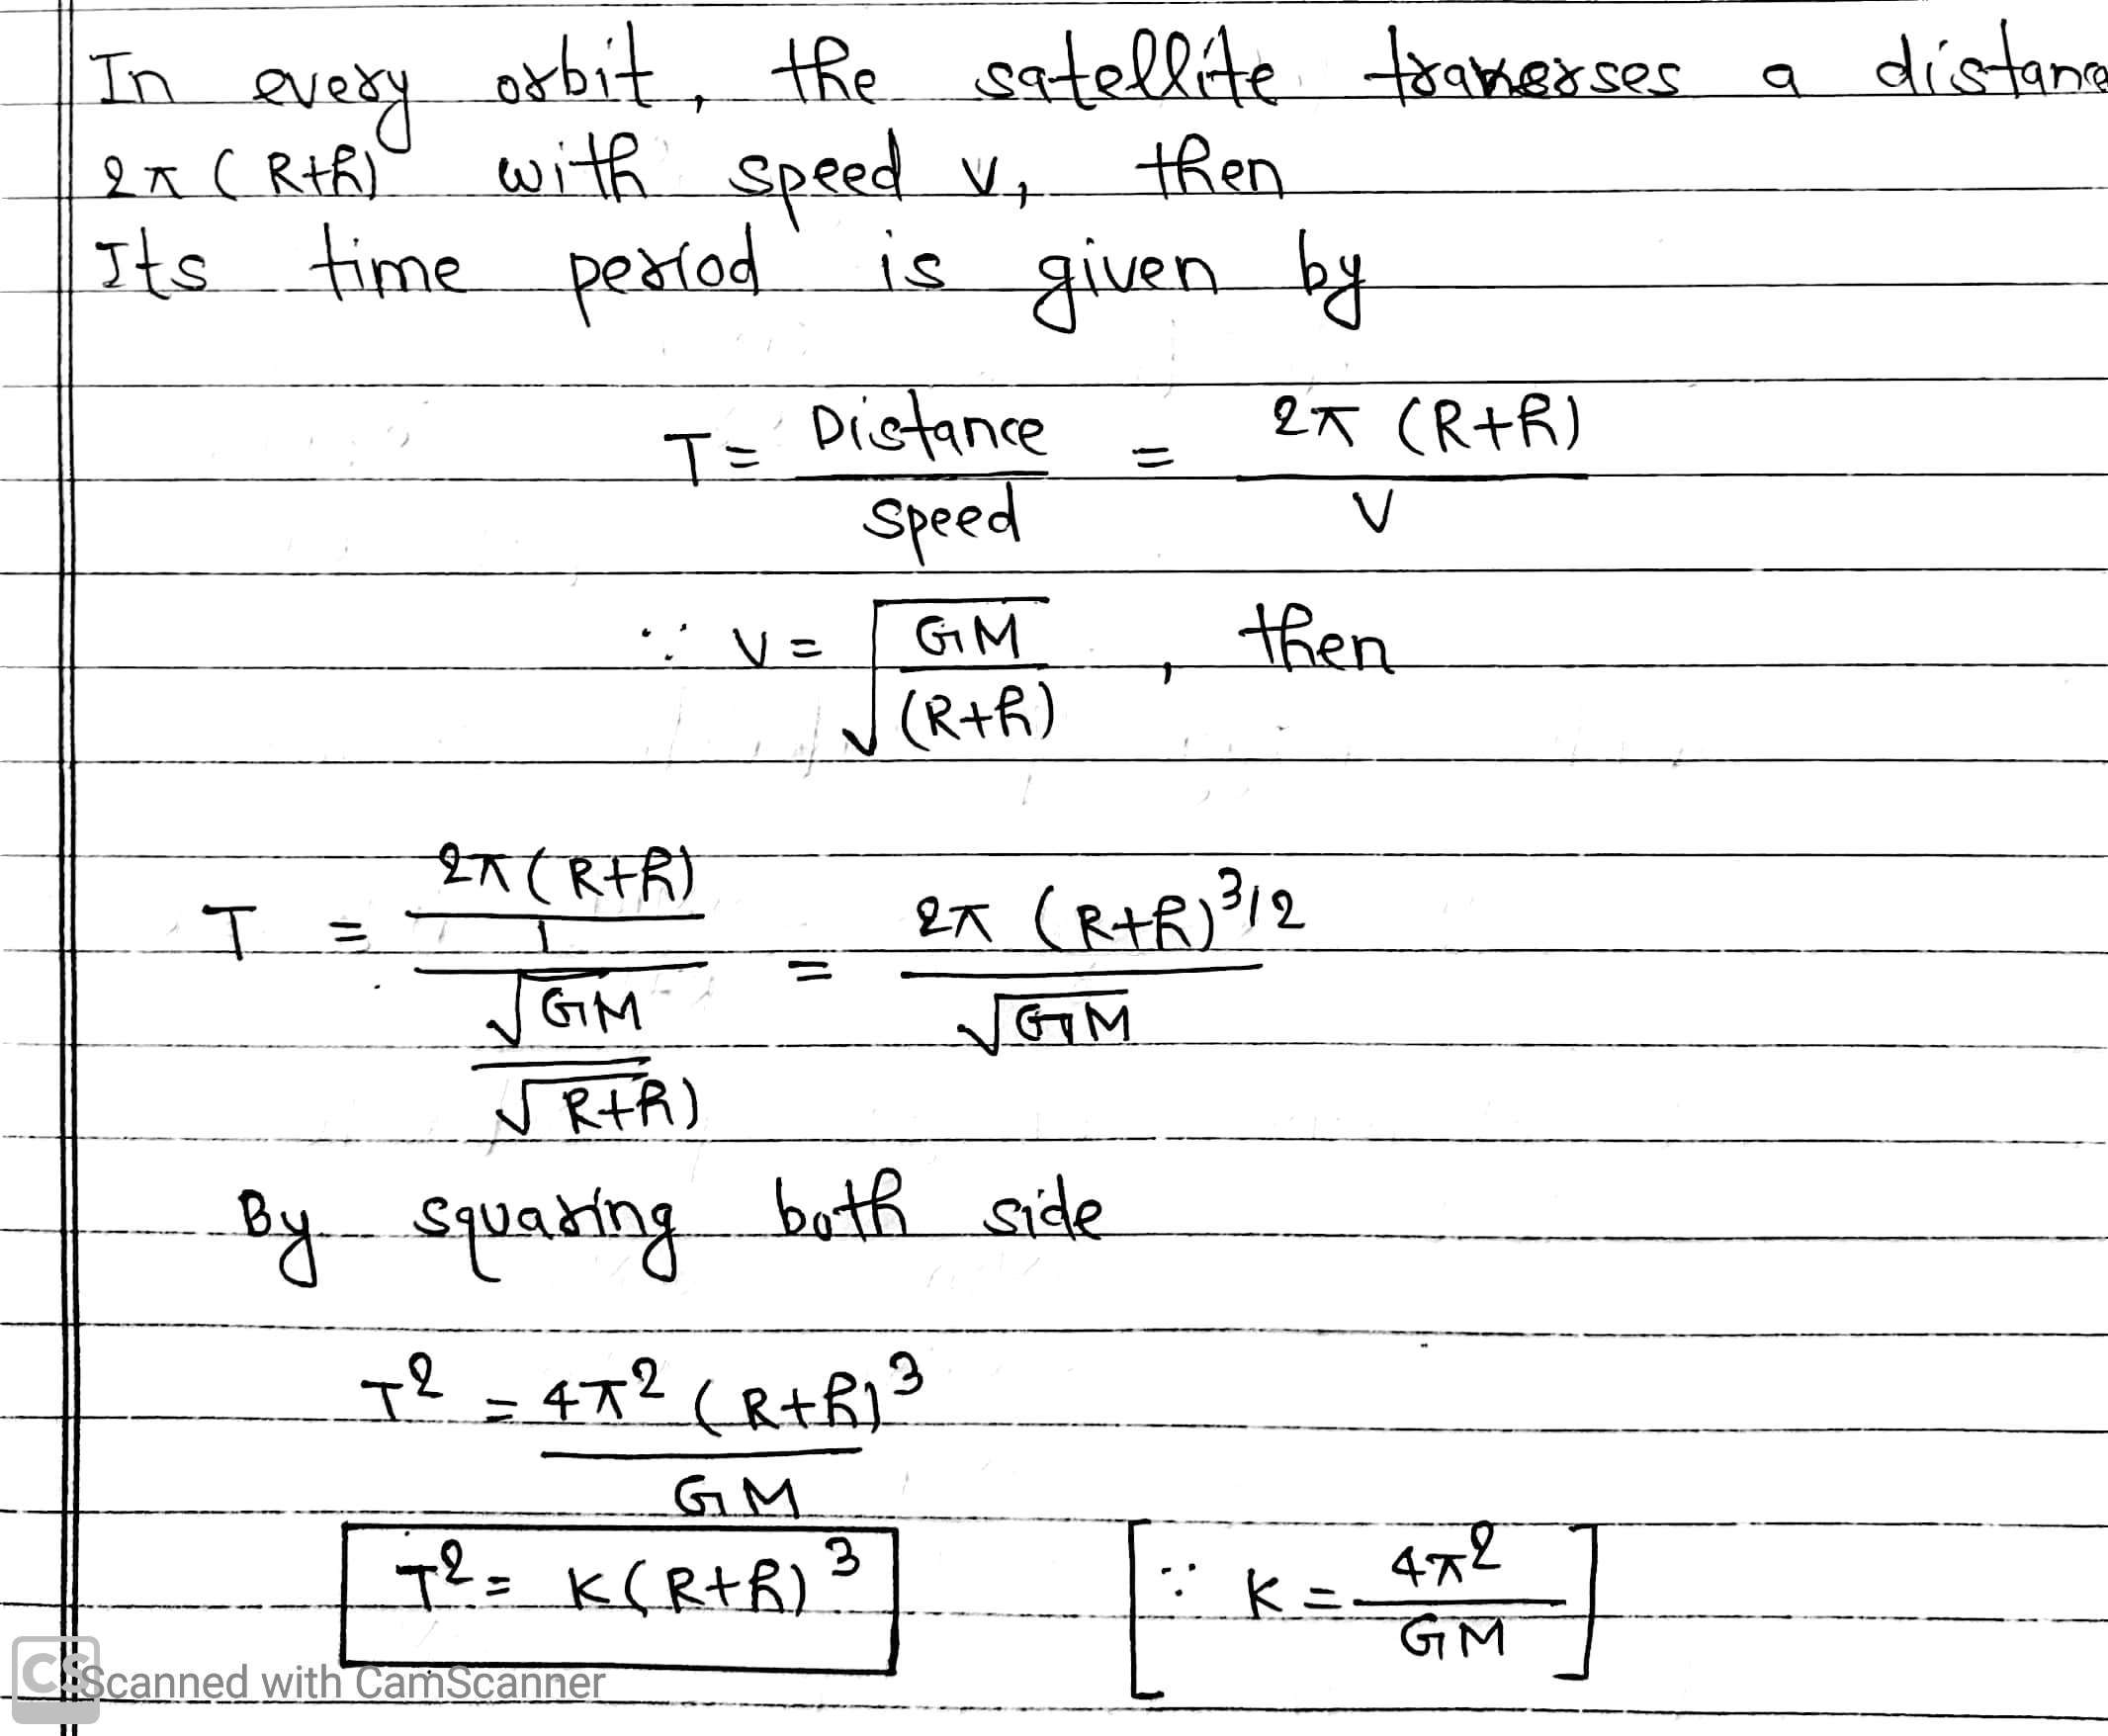 In every orbit, the satellite traverses a distance
2π (R+h) with speed v, then
Its time period is given by
T = Distance / speed = 2π (R+h) / v
∵ v = √(GM / (R+h)) , then
T = 2π(R+h) / 1 / √GM / √R+h) = 2π (R+h)^3/2 / √GM
By squaring both side
T² = 4π² (R+h)³ / GM
T² = K(R+h)³ [∵ K = 4π² / GM]
CS Scanned with CamScanner